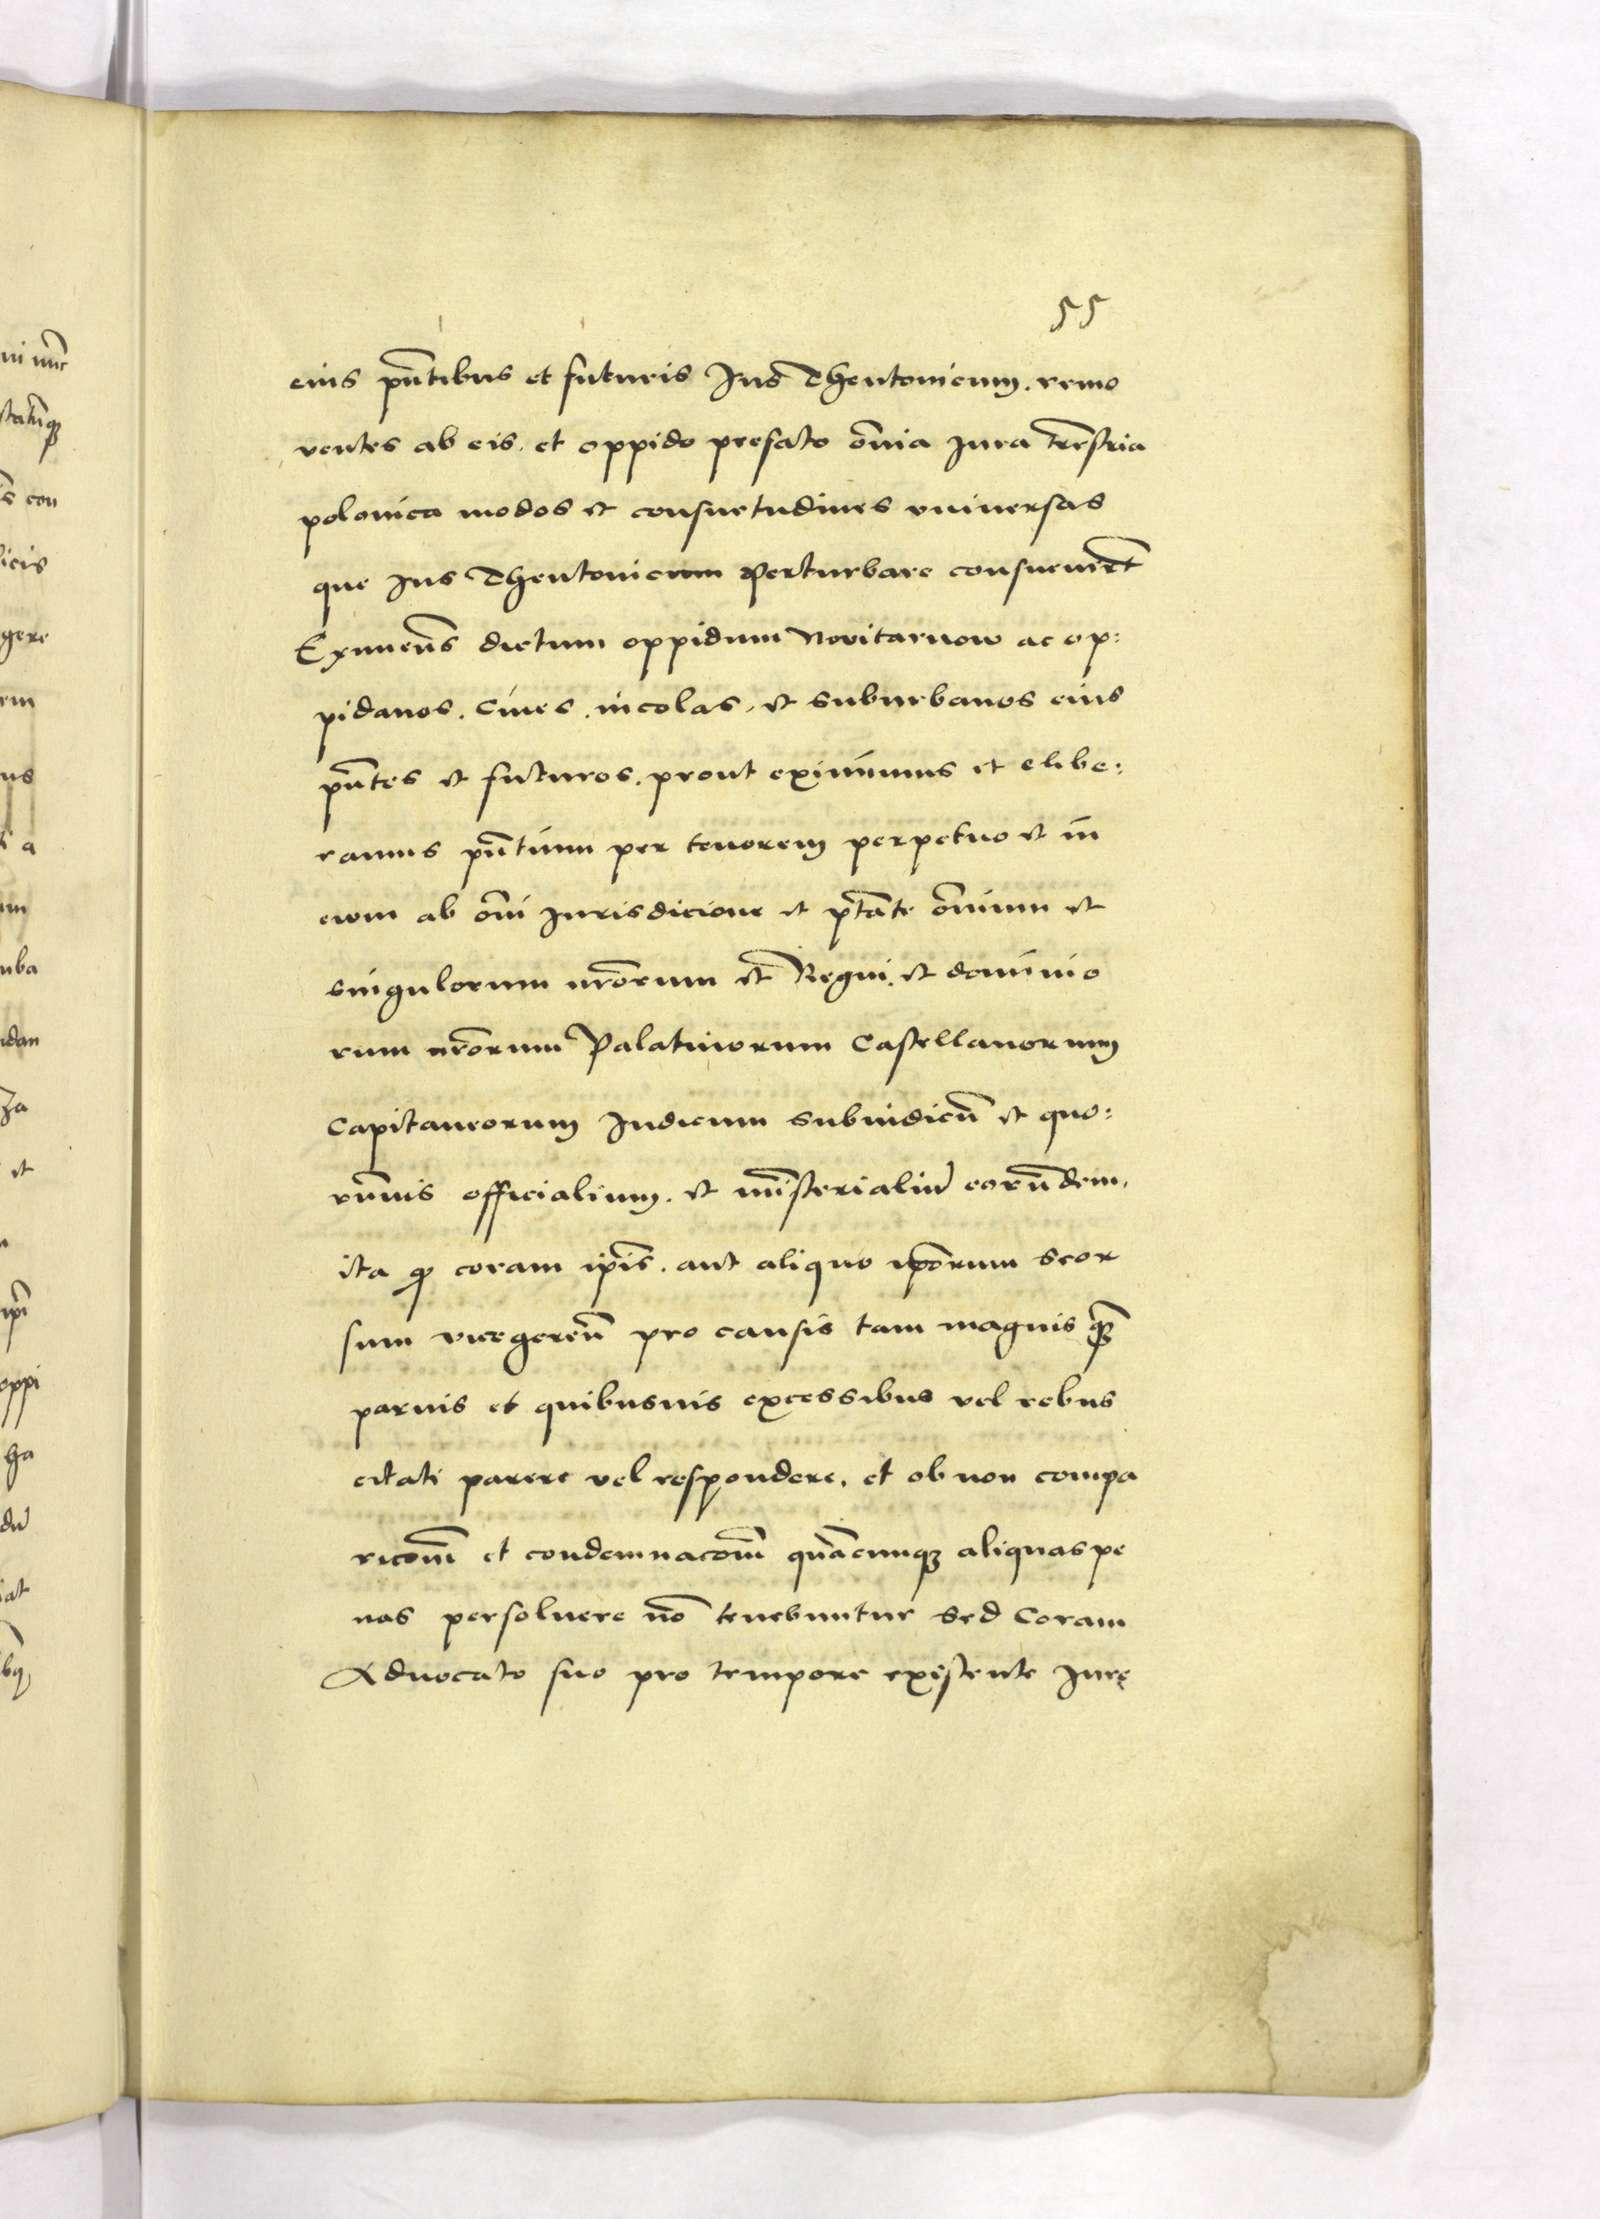 55
eius pn̄tibus et futuris Jus Thentonicum. remo
ventes ab eis. et oppido prefato om̄ia Jura terr̄stria
polonica modos et consuetudines vniuersas
que Jus Thentonicum perturbare consueuerūt
Eximen̄s dictum oppidum Novitarnow ac op:
pidanos. Ciues. incolas. et suburbanos eius
pn̄tes et futuros. prout eximimus et elibe:
ramus pn̄tium per tenorem perpetuo et in
euum ab om̄i Jurisdicione et ptāte om̄ium et
singulorum nr̄orum et Regni. et dominio
rum nr̄orum Palatinorum Castellanorum
Capitaneorum Judicum subiudicū et quo:
rūuis officialium. et mīsterialiū eorūdem.
ita qꝫ coram ip̄is. aut aliquo ip̄orum seor
sum vicegeren̄ pro causis tam magnis qꝫ̄
paruis et quibusuis excessibus vel rebus
citati parere vel respondere. et ob non compa
ricōm̄ et condemnacōm̄ quācumqꝫ aliquas pe
nas persoluere nō tenebuntur Sed Coram
Aduocato suo pro tempore existente Jurę
ni nūc
statūqꝫ
s̄ con
licis
gere
rem
us
a
um
uba
idan
za
et
ip̄i
oppi
ha
dū
iat
bqꝫ